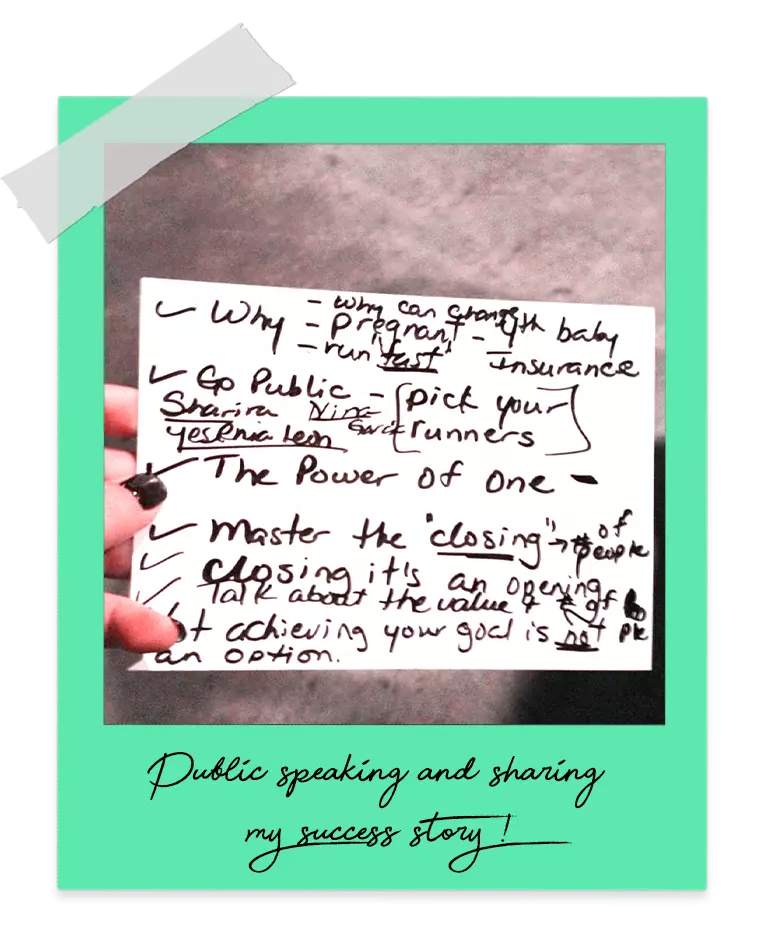 ✓ Why - Why can change
- Pregnant - 4th baby
- run "fast" Insurance
✓ Go Public - [pick your
Sharira Nina
Yesenia Leon runners]
✓ The Power of one -
✓ Master the "closing" → # of people
✓ closing it's an opening
✓ Talk about the value & # of ppl
Not achieving your goal is not
an option.
Public speaking and sharing
my success story!